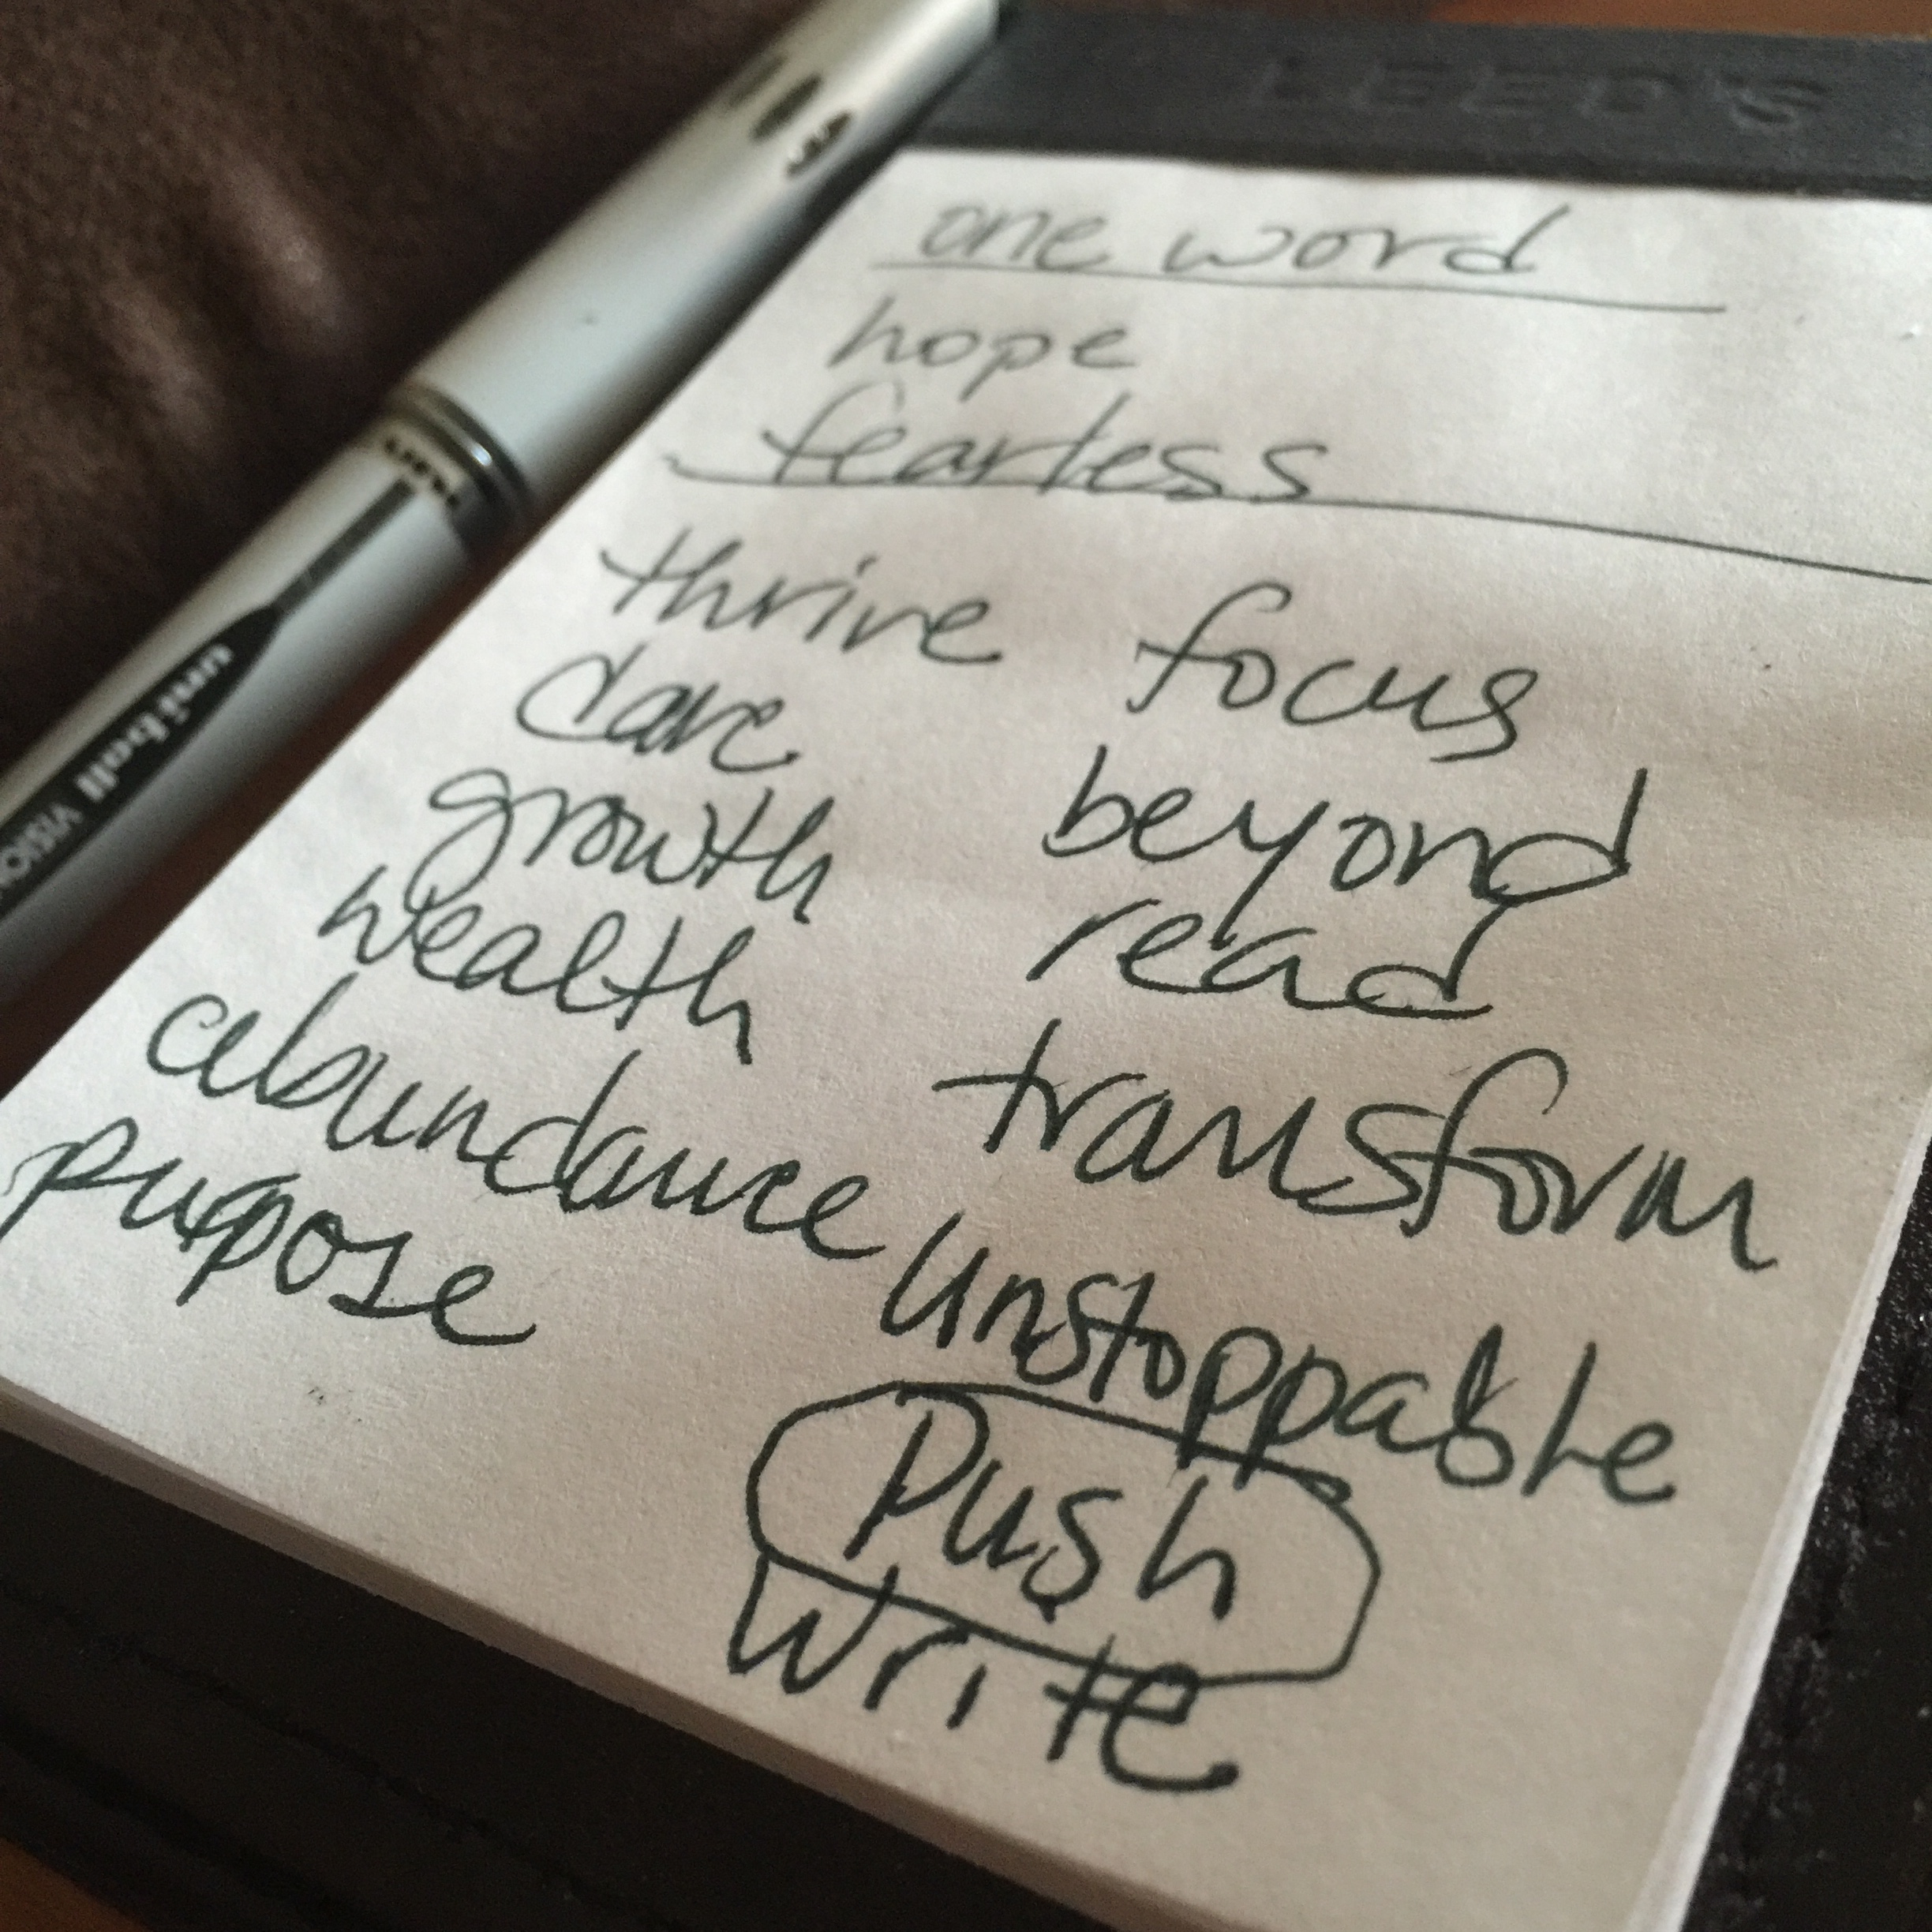 LEED'S
one word
hope
fearless
thrive
dare
growth
wealth
abundance
purpose
focus
beyond
read
transform
unstoppable
Push
write
uni-ball VISION